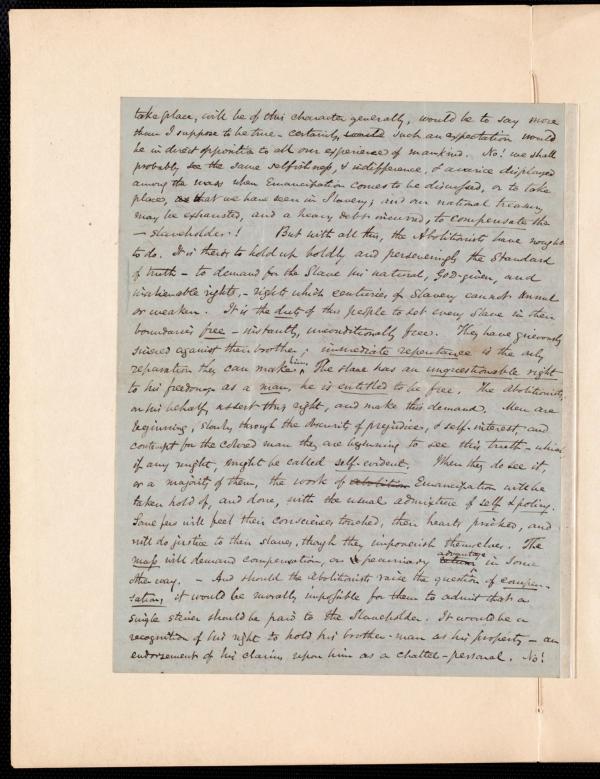 take place, will be of this character generally, would be to say more
than I suppose to be true - certainly, such an expectation would
be in direct opposition to all our experience of mankind. No! we shall
probably see the same selfishness, & indifference, & avarice displayed
among the mass when Emancipation comes to be discussed, or to take
place, that we have seen in Slavery; and our national treasury
may be exhausted, and a heavy debt incurred, to compensate the
- slaveholder! But with all this, the Abolitionists have nought
to do. It is theirs to hold up boldly and perseveringly the Standard
of truth - to demand for the Slave his natural, God-given, and
inalienable rights, - rights which centuries of Slavery cannot annul
or weaken. It is the duty of this people to set every slave in their
boundaries free - instantly, unconditionally free. They have grievously
sinned against their brother; immediate repentance is the only
reparation they can make him. The slave has an unquestionable right
to his freedom as a man, he is entitled to be free. The Abolitionists,
on his behalf, assert this right, and make this demand. Men are
beginning, slowly, through the obscurity of prejudice, & self-interest and
contempt for the colored man they are beginning to see this truth - which
if any might, might be called self-evident. When they do see it,
or a majority of them, the work of abolition Emancipation will be
taken hold of, and done, with the usual admixture of self & policy.
Some few will feel their consciences touched, their hearts pricked, and
will do justice to their slaves, though they impoverish themselves. The
mass will demand compensation, or pecuniary advantage in some
other way. - And should the Abolitionists raise the question of compen-
sation, it would be morally impossible for them to admit that a
single stiver should be paid to the Slaveholder. It would be a
recognition of his right to hold his brother-man as his property - an
endorsement of his claim upon him as a chattel-personal. No!